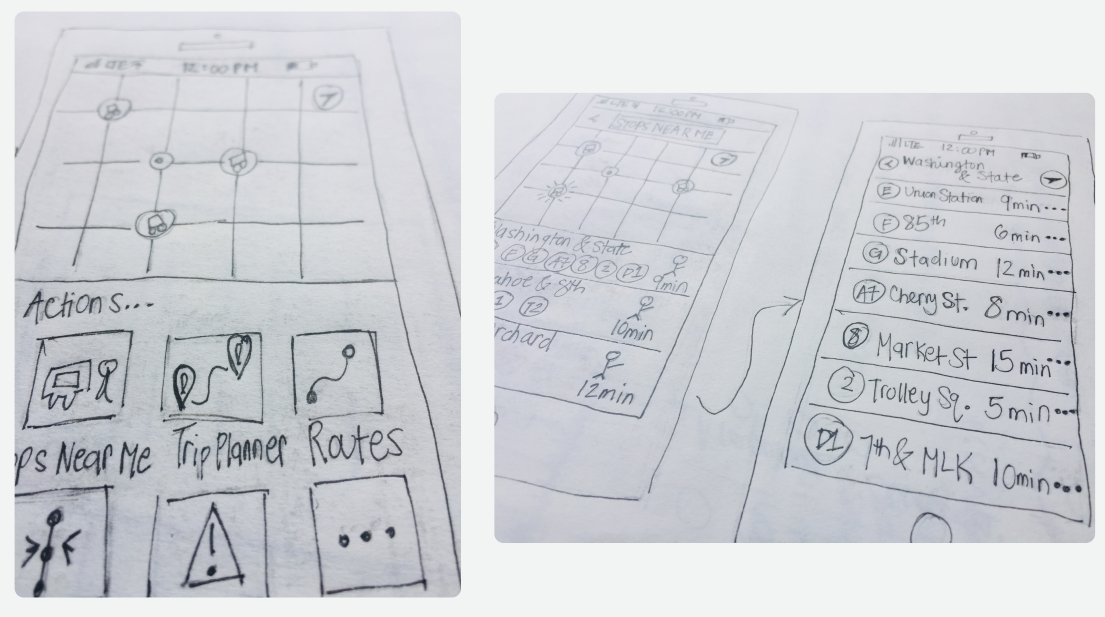 LTE
12:00 PM
Actions...
ps Near Me
Trip Planner
Routes
LTE
12:00PM
<
STOPS NEAR ME
ashington & State
F G A7 8 2 D1
9min
ahoe & 8th
1 T2
10min
rchard
12min
LTE 12:00 PM
< Washington
& State
E Union Station 9min...
F 85th 6min...
G Stadium 12min...
A7 Cherry St. 8min...
8 Market St 15min...
2 Trolley Sq. 5min...
D1 7th & MLK 10min...